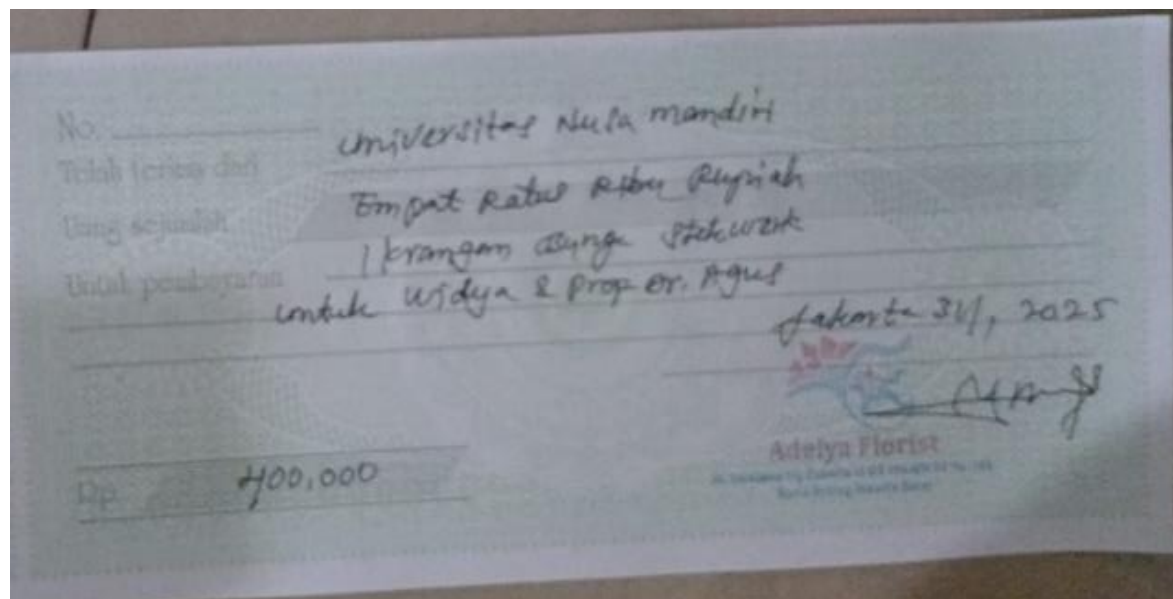 No.
Telah terima dari Universitas Nusa mandiri
Uang sejumlah Empat Ratus Ribu Rupiah
Untuk pembayaran 1 krangan Bunga
untuk Widya & Prop Dr. Agus
Jakarta 31/, 2025
Adelya Florist
Rp 400,000